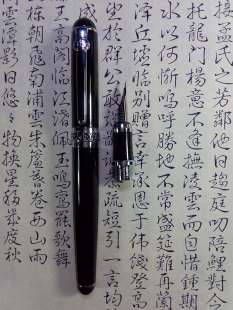 接孟氏之芳鄰他日趨庭叨陪鯉對今
托龍門楊意不逢撫凌雲而自惜鍾期
水以何慚嗚呼勝地不常盛筵難再蘭
澤丘墟臨別贈言幸承恩于偉餞登高
望於群公敢竭鄙疏短引一言均
王高閣臨江渚佩玉鳴鸞罷歌舞
棟朝飛南浦雲朱簾暮卷西山雨
雲潭影日悠々物換星移幾度秋